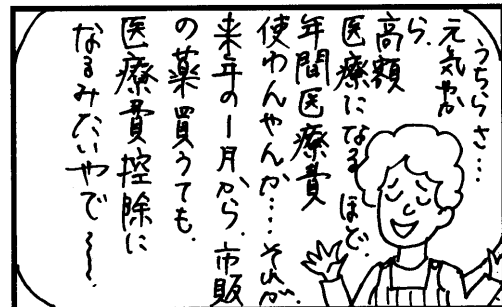 うちらさ…
元気やか
ら、
高額
医療になるほど
年間医療費
使わんやんか…それが
来年の1月から、市販
の薬買うても、
医療費控除に
なるみたいやで〜〜。